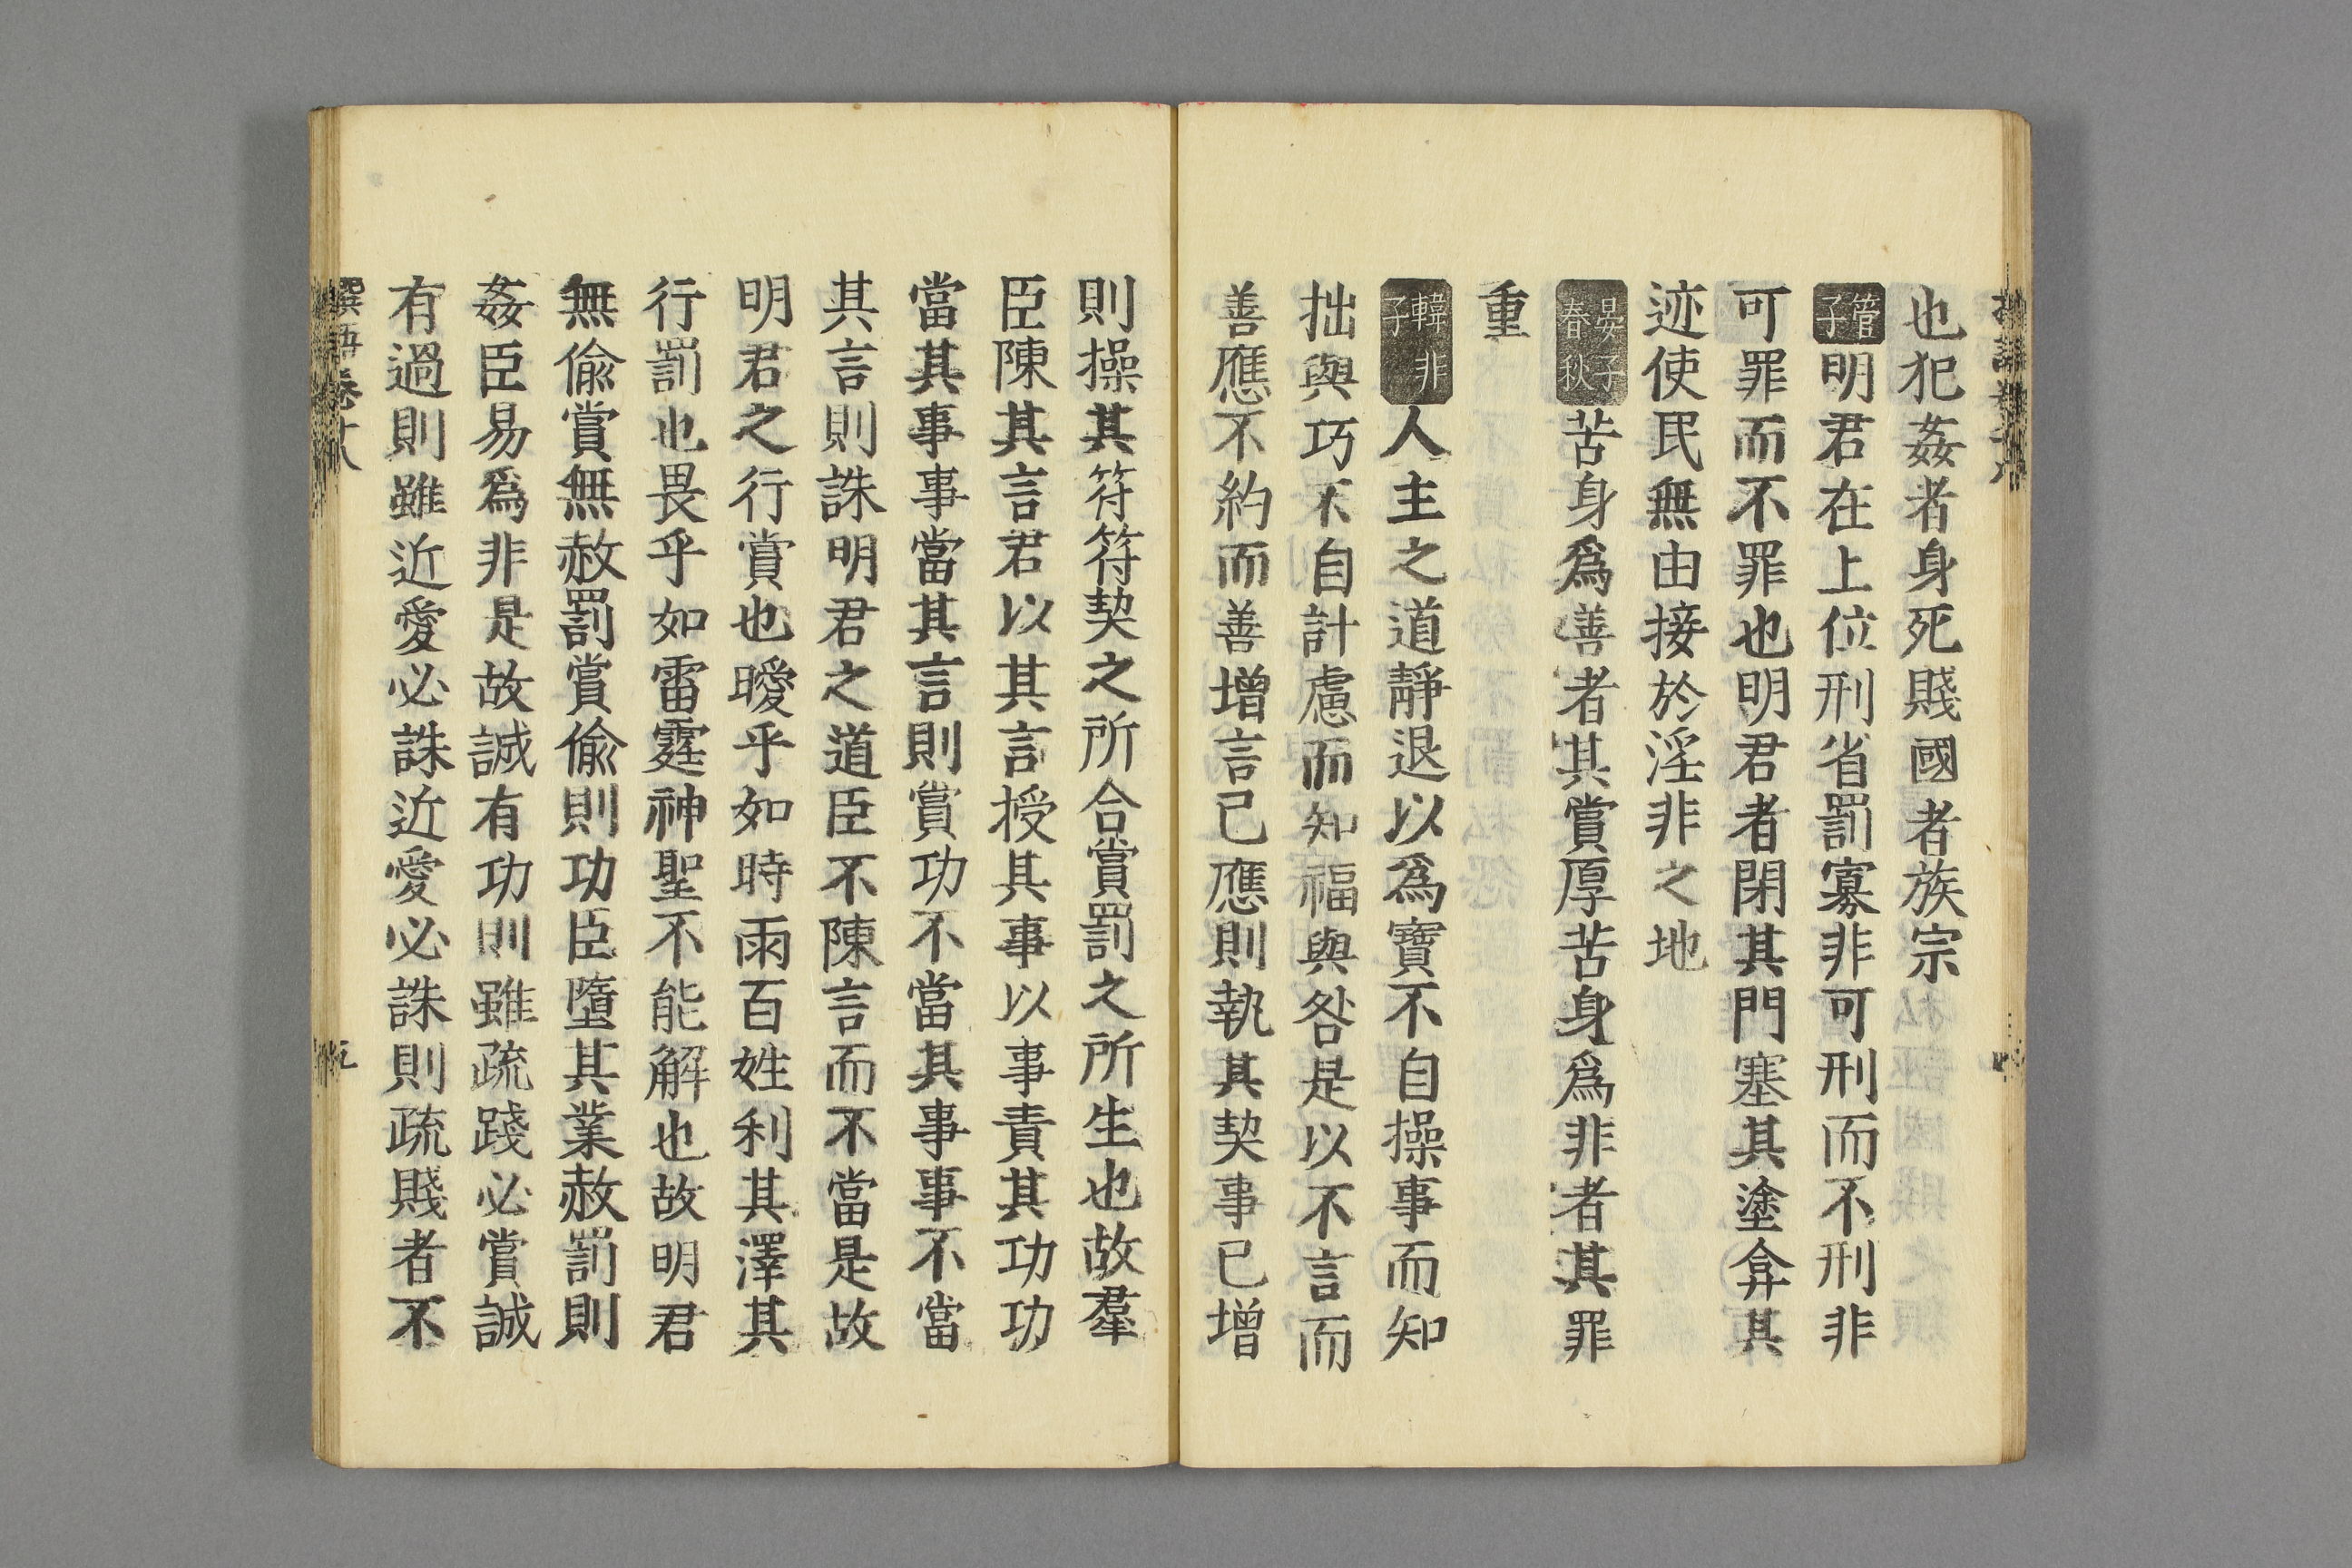 也犯姦者身死賤國者族宗
管子明君在上位刑省罰寡非可刑而不刑非
可罪而不罪也明君者閉其門塞其塗弇其
迹使民無由接於淫非之地
晏子春秋苦身爲善者其賞厚苦身爲非者其罪
重
韓非子人主之道靜退以爲寶不自操事而知
拙與巧不自計慮而知福與咎是以不言而
善應不約而善增言已應則執其契事已增
則操其符符契之所合賞罰之所生也故羣
臣陳其言君以其言授其事以事責其功功
當其事事當其言則賞功不當其事事不當
其言則誅明君之道臣不陳言而不當是故
明君之行賞也曖乎如時雨百姓利其澤其
行罰也畏乎如雷霆神聖不能解也故明君
無偸賞無赦罰賞偸則功臣墮其業赦罰則
姦臣易爲非是故誠有功則雖疏踐必賞誠
有過則雖近愛必誅近愛必誅則疏賤者不
語卷十八
五